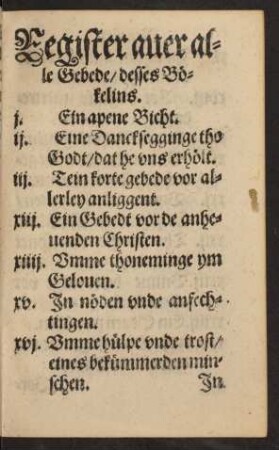 Register auer al-
le Gebede/ desses Bö-
kelins.
j. Ein apene Bicht.
ij. Eine Dancksegginge tho
Godt/ dat he vns erhölt.
iij. Tein korte gebede vor al-
lerley anliggent.
xiij. Ein Gebedt vor de anhe-
uenden Christen.
xiiij. Vmme thoneminge ym
Gelouen.
xv. In nöden vnde anfech-
tingen.
xvj. Vmme hülpe vnde trost/
eines bekümmerden min-
schen. In